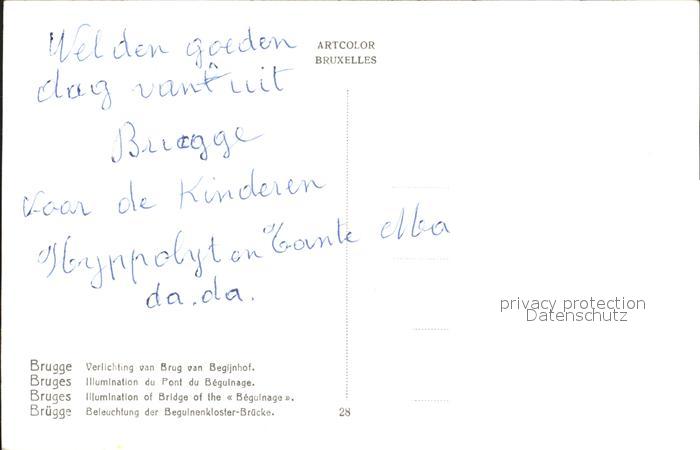 Wel den goeden
dag vant uit
Brugge
voor de Kinderen
Hyppolyt en Tante
da.da.
ARTCOLOR
BRUXELLES
Brugge Verlichting van Brug van Begijnhof.
Bruges Illumination du Pont du Béguinage.
Bruges Illumination of Bridge of the « Béguinage ».
Brügge Beleuchtung der Beguinenkloster-Brücke.
28
privacy protection
Datenschutz